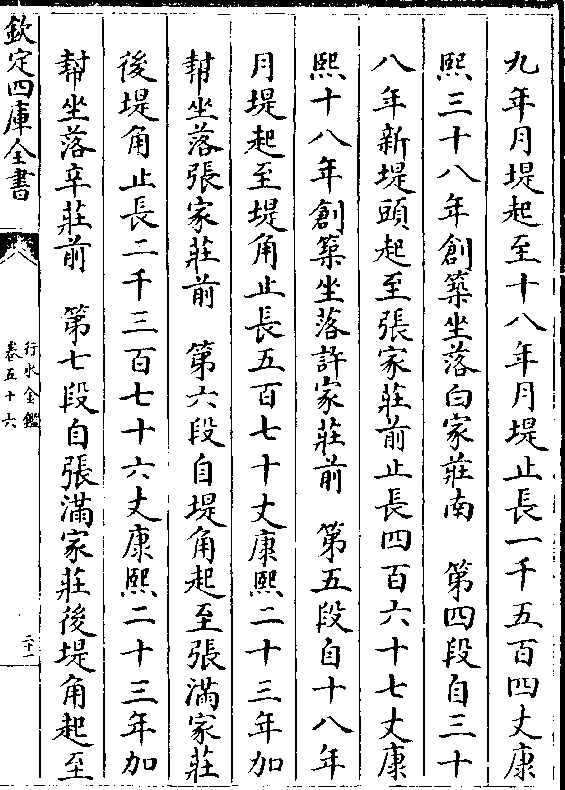 九年月堤起至十八年月堤止長一千五百四丈康
熙三十八年創築坐落白家莊南　第四段自三十
八年新堤頭起至張家莊前止長四百六十七丈康
熙十八年創築坐落許家莊前　第五段自十八年
月堤起至堤角止長五百七十丈康熙二十三年加
幇坐落張家莊前　第六段自堤角起至張滿家莊
後堤角止長二千三百七十六丈康熙二十三年加
幇坐落辛莊前　第七段自張滿家莊後堤角起至
欽定四庫全書
行水金鑑
卷五十六